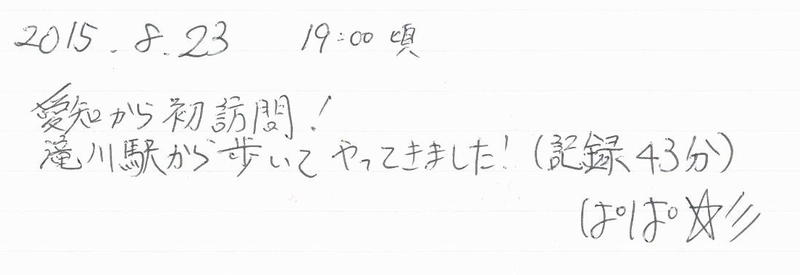 2015.8.23 19:00頃
愛知から初訪問!
滝川駅から歩いてやってきました!(記録43分)
ぱぱ☆彡